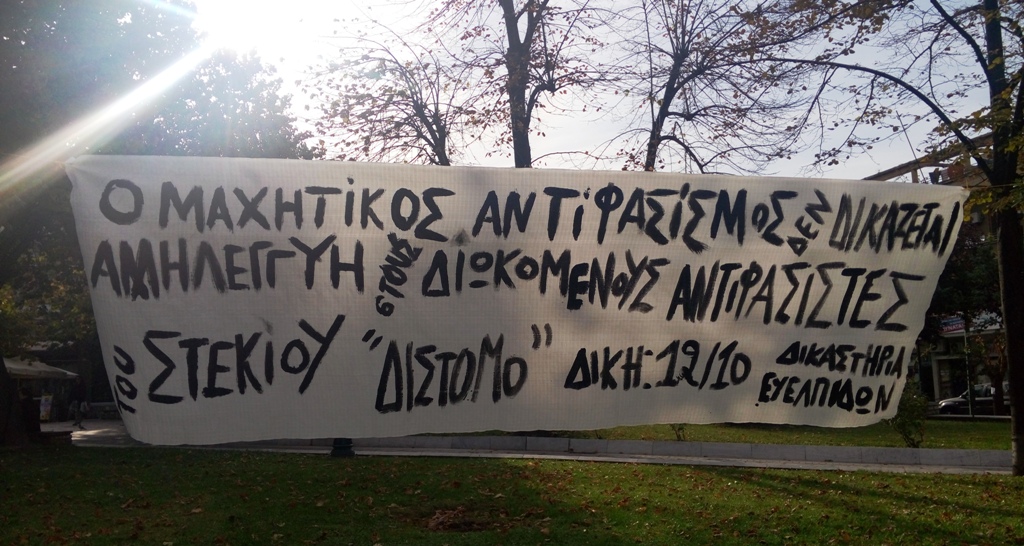 Ο ΜΑΧΗΤΙΚΟΣ ΑΝΤΙΦΑΣΙΣΜΟΣ ΔΕΝ ΔΙΚΑΖΕΤΑΙ
ΑΛΛΗΛΕΓΓΥΗ ΣΤΟΥΣ ΔΙΩΚΟΜΕΝΟΥΣ ΑΝΤΙΦΑΣΙΣΤΕΣ
ΤΟΥ ΣΤΕΚΙΟΥ "ΔΙΣΤΟΜΟ" ΔΙΚΗ: 12/10 ΔΙΚΑΣΤΗΡΙΑ
ΕΥΕΛΠΙΔΩΝ